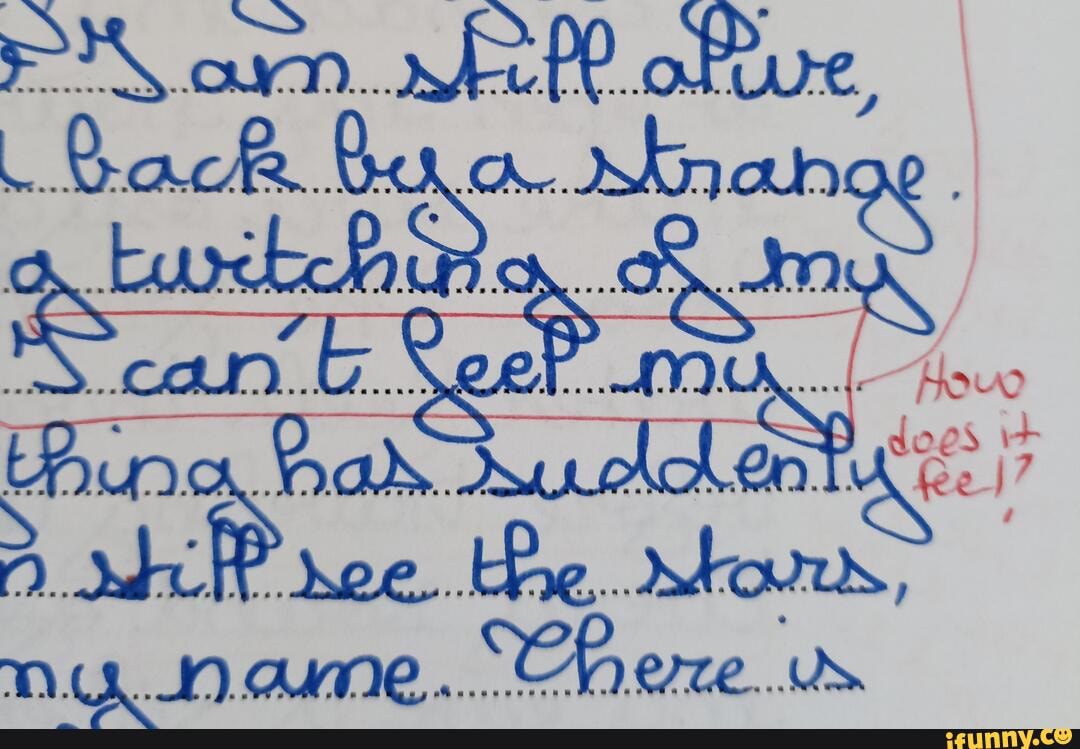 I am still alive,
back by a strange.
g twitching of my
I can't feel my
thing has suddenly
still see the stars,
my name. There is
How
does it
feel?
ifunny.co